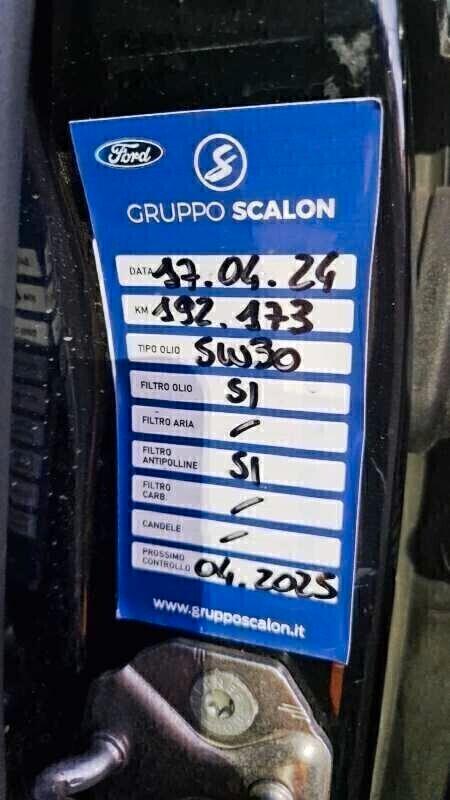 Ford
GRUPPO SCALON
DATA 17.04.24
KM 192.173
TIPO OLIO 5W30
FILTRO OLIO SI
FILTRO ARIA -
FILTRO
ANTIPOLLINE SI
FILTRO
CARB. -
CANDELE -
PROSSIMO
CONTROLLO 04.2025
www.grupposcalon.it